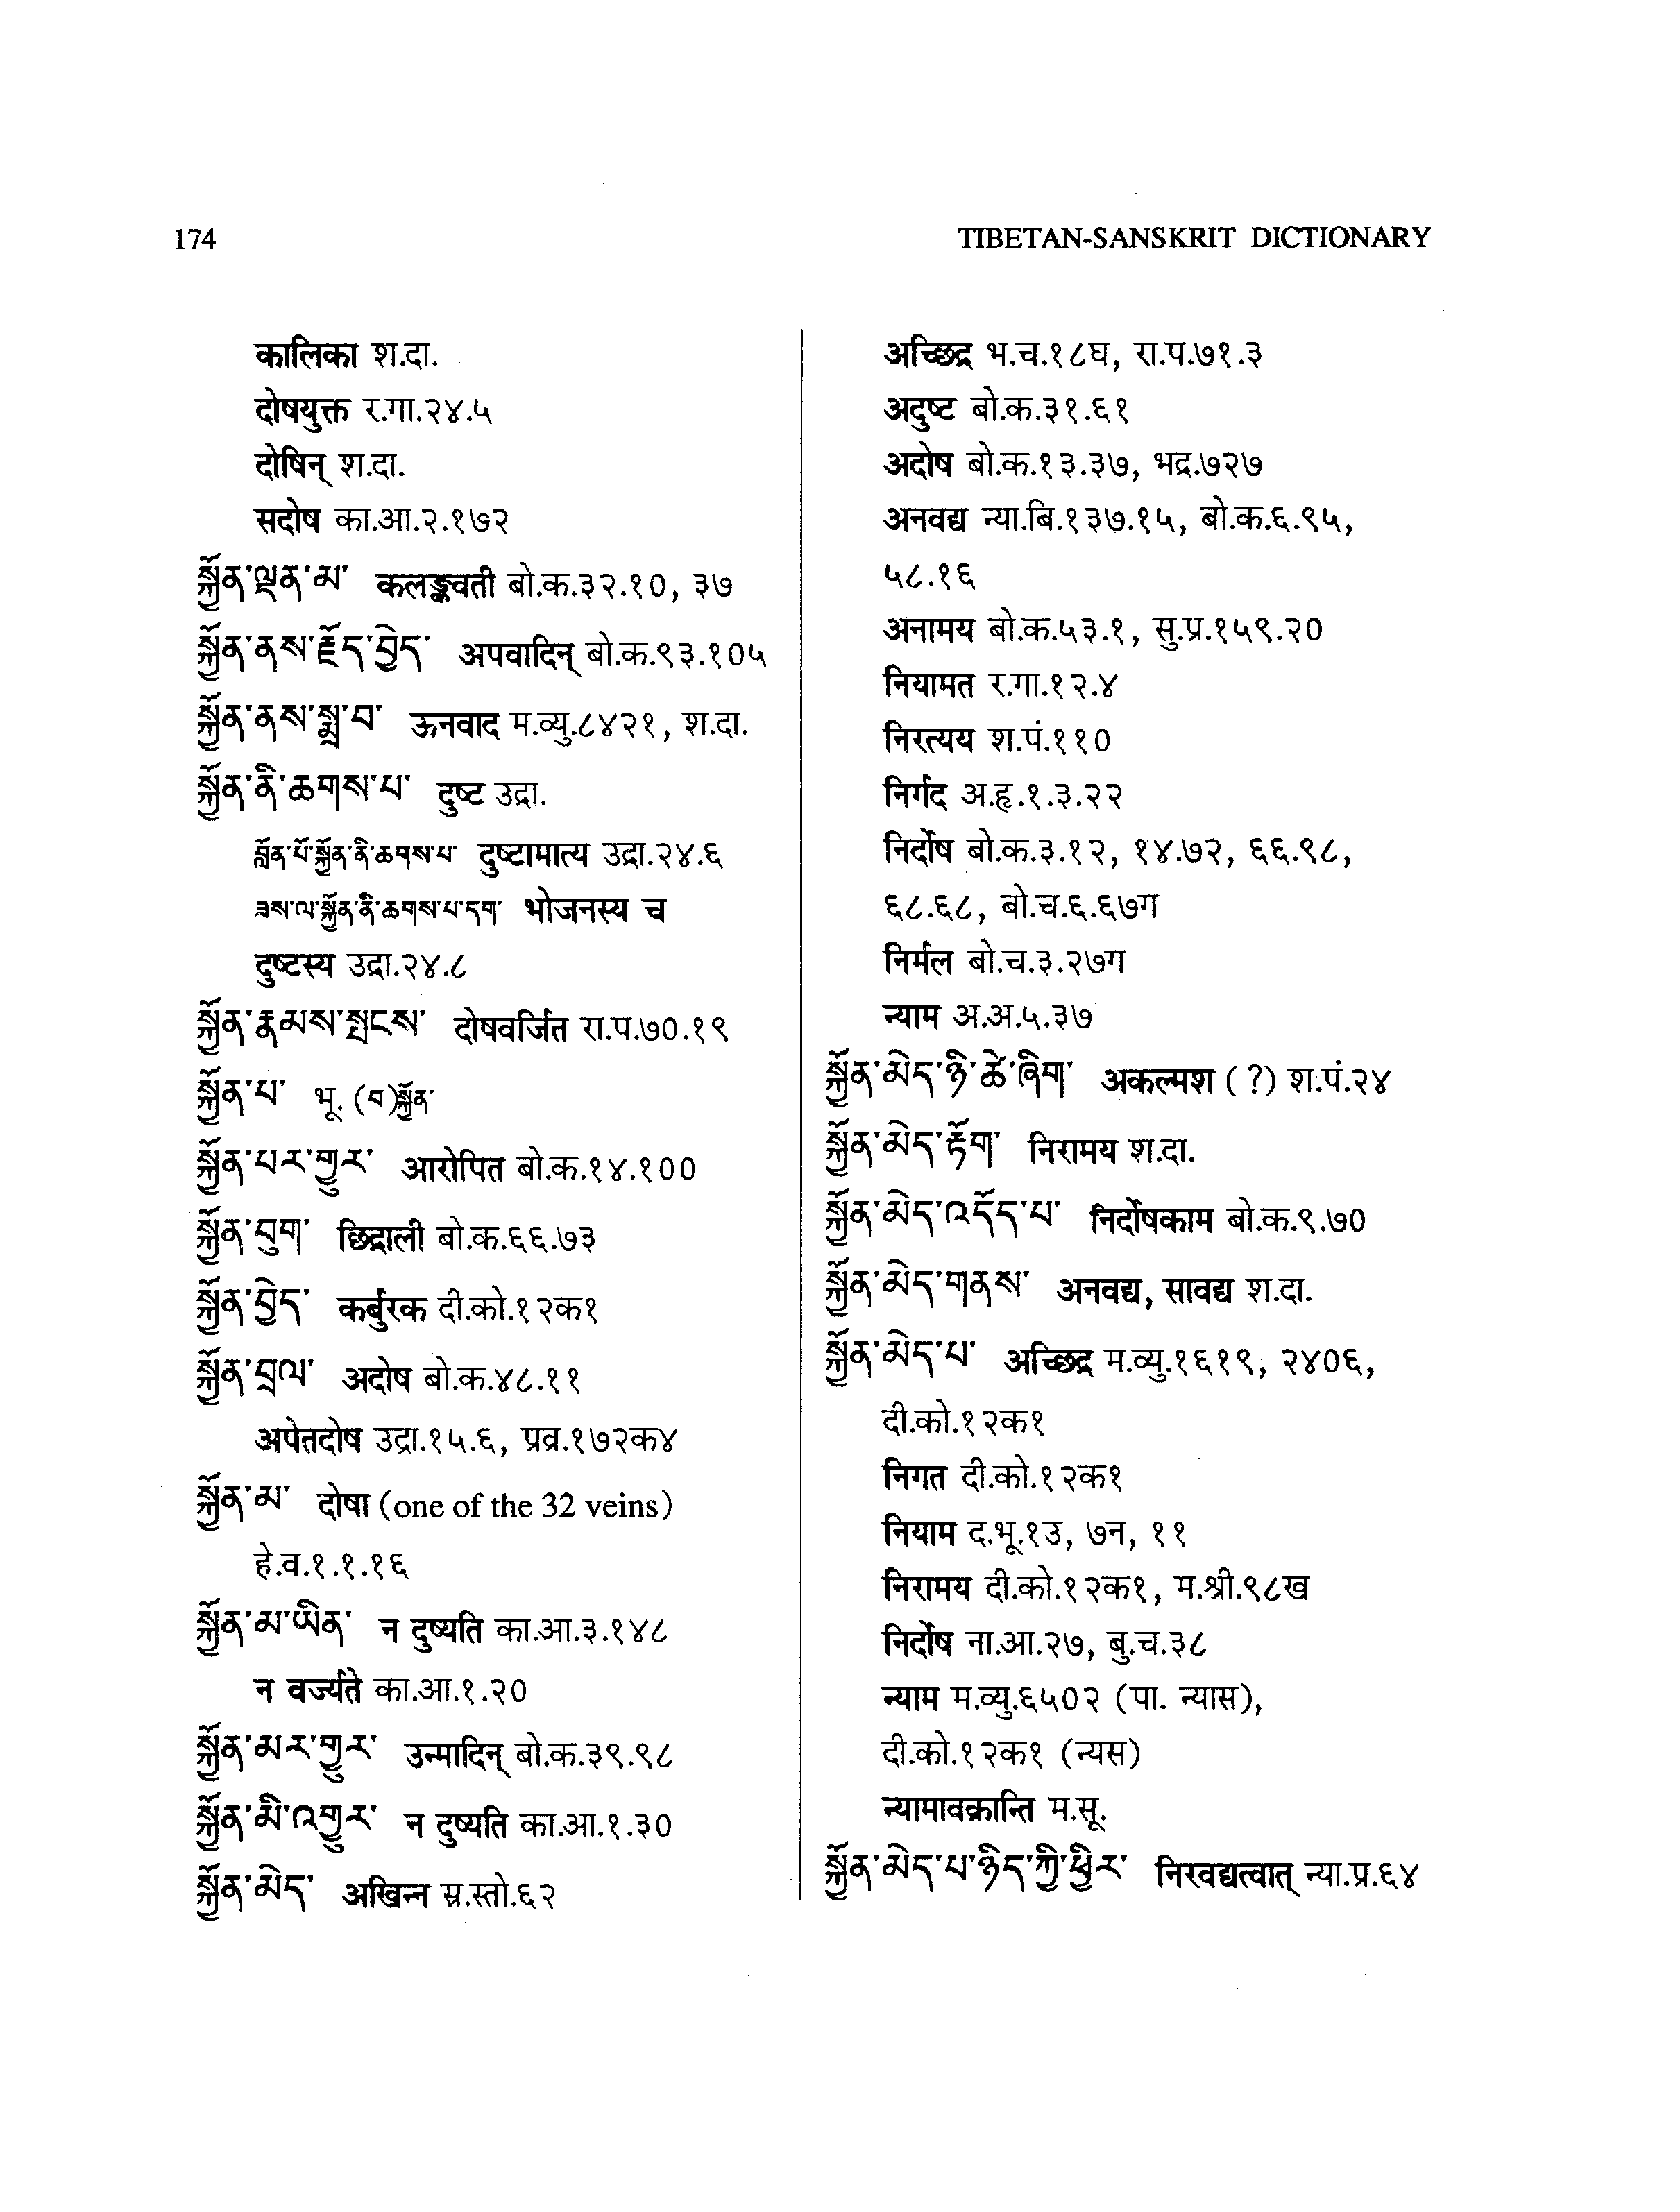 174
TIBETAN-SANSKRIT DICTIONARY
कालिका श.दा.
दोषयुक्त र.गा.२४.५
दोषिन् श.दा.
सदोष का.आ.२.१७२
སྐྱོན་ལྡན་མ་ कलङ्कवती बो.क.३२.१०, ३७
སྐྱོན་ནས་རྗོད་བྱེད་ अपवादिन् बो.क.९३.१०५
སྐྱོན་ནས་སྨྲ་བ་ ऊनवाद म.व्यु.८४२१, श.दा.
སྐྱོན་ནི་ཆགས་པ་ दुष्ट उद्रा.
བློན་པོ་སྐྱོན་ནི་ཆགས་པ་ दुष्टामात्य उद्रा.२४.६
ཟས་ལ་སྐྱོན་ནི་ཆགས་པ་དག་ भोजनस्य च
दुष्टस्य उद्रा.२४.८
སྐྱོན་རྣམས་སྤངས་ दोषवर्जित रा.प.७०.१९
སྐྱོན་པ་ भू. (བ)སྐྱོན་
སྐྱོན་པར་གྱུར་ आरोपित बो.क.१४.१००
སྐྱོན་བུག་ छिद्राली बो.क.६६.७३
སྐྱོན་བྱེད་ कर्बुरक दी.को.१२क१
སྐྱོན་བྲལ་ अदोष बो.क.४८.११
अपेतदोष उद्रा.१५.६, प्रव्र.१७२क४
སྐྱོན་མ་ दोषा (one of the 32 veins)
हे.व.१.१.१६
སྐྱོན་མ་ཡིན་ न दुष्यति का.आ.३.१४८
न वर्ज्यते का.आ.१.२०
སྐྱོན་མར་གྱུར་ उन्मादिन् बो.क.३९.९८
སྐྱོན་མི་འགྱུར་ न दुष्यति का.आ.१.३०
སྐྱོན་མེད་ अखिन्न स्र.स्तो.६२
अच्छिद्र भ.च.१८घ, रा.प.७१.३
अदुष्ट बो.क.३१.६१
अदोष बो.क.१३.३७, भद्र.७२७
अनवद्य न्या.बि.१३७.१५, बो.क.६.९५,
५८.१६
अनामय बो.क.५३.१, सु.प्र.१५९.२०
नियामत र.गा.१२.४
निरत्यय श.पं.११०
निर्गद अ.हृ.१.३.२२
निर्दोष बो.क.३.१२, १४.७२, ६६.९८,
६८.६८, बो.च.६.६७ग
निर्मल बो.च.३.२७ग
न्याम अ.अ.५.३७
སྐྱོན་མེད་ཉི་ཚེ་ཞིག་ अकल्मश (?) श.पं.२४
སྐྱོན་མེད་རྟོག་ निरामय श.दा.
སྐྱོན་མེད་འདོད་པ་ निर्दोषकाम बो.क.९.७०
སྐྱོན་མེད་གནས་ अनवद्य, सावद्य श.दा.
སྐྱོན་མེད་པ་ अच्छिद्र म.व्यु.१६१९, २४०६,
दी.को.१२क१
निगत दी.को.१२क१
नियाम द.भू.१उ, ७न, ११
निरामय दी.को.१२क१, म.श्री.९८ख
निर्दोष ना.आ.२७, बु.च.३८
न्याम म.व्यु.६५०२ (पा. न्यास),
दी.को.१२क१ (न्यस)
न्यामावक्रान्ति म.सू.
སྐྱོན་མེད་པ་ཉིད་ཀྱི་ཕྱིར་ निरवद्यत्वात् न्या.प्र.६४